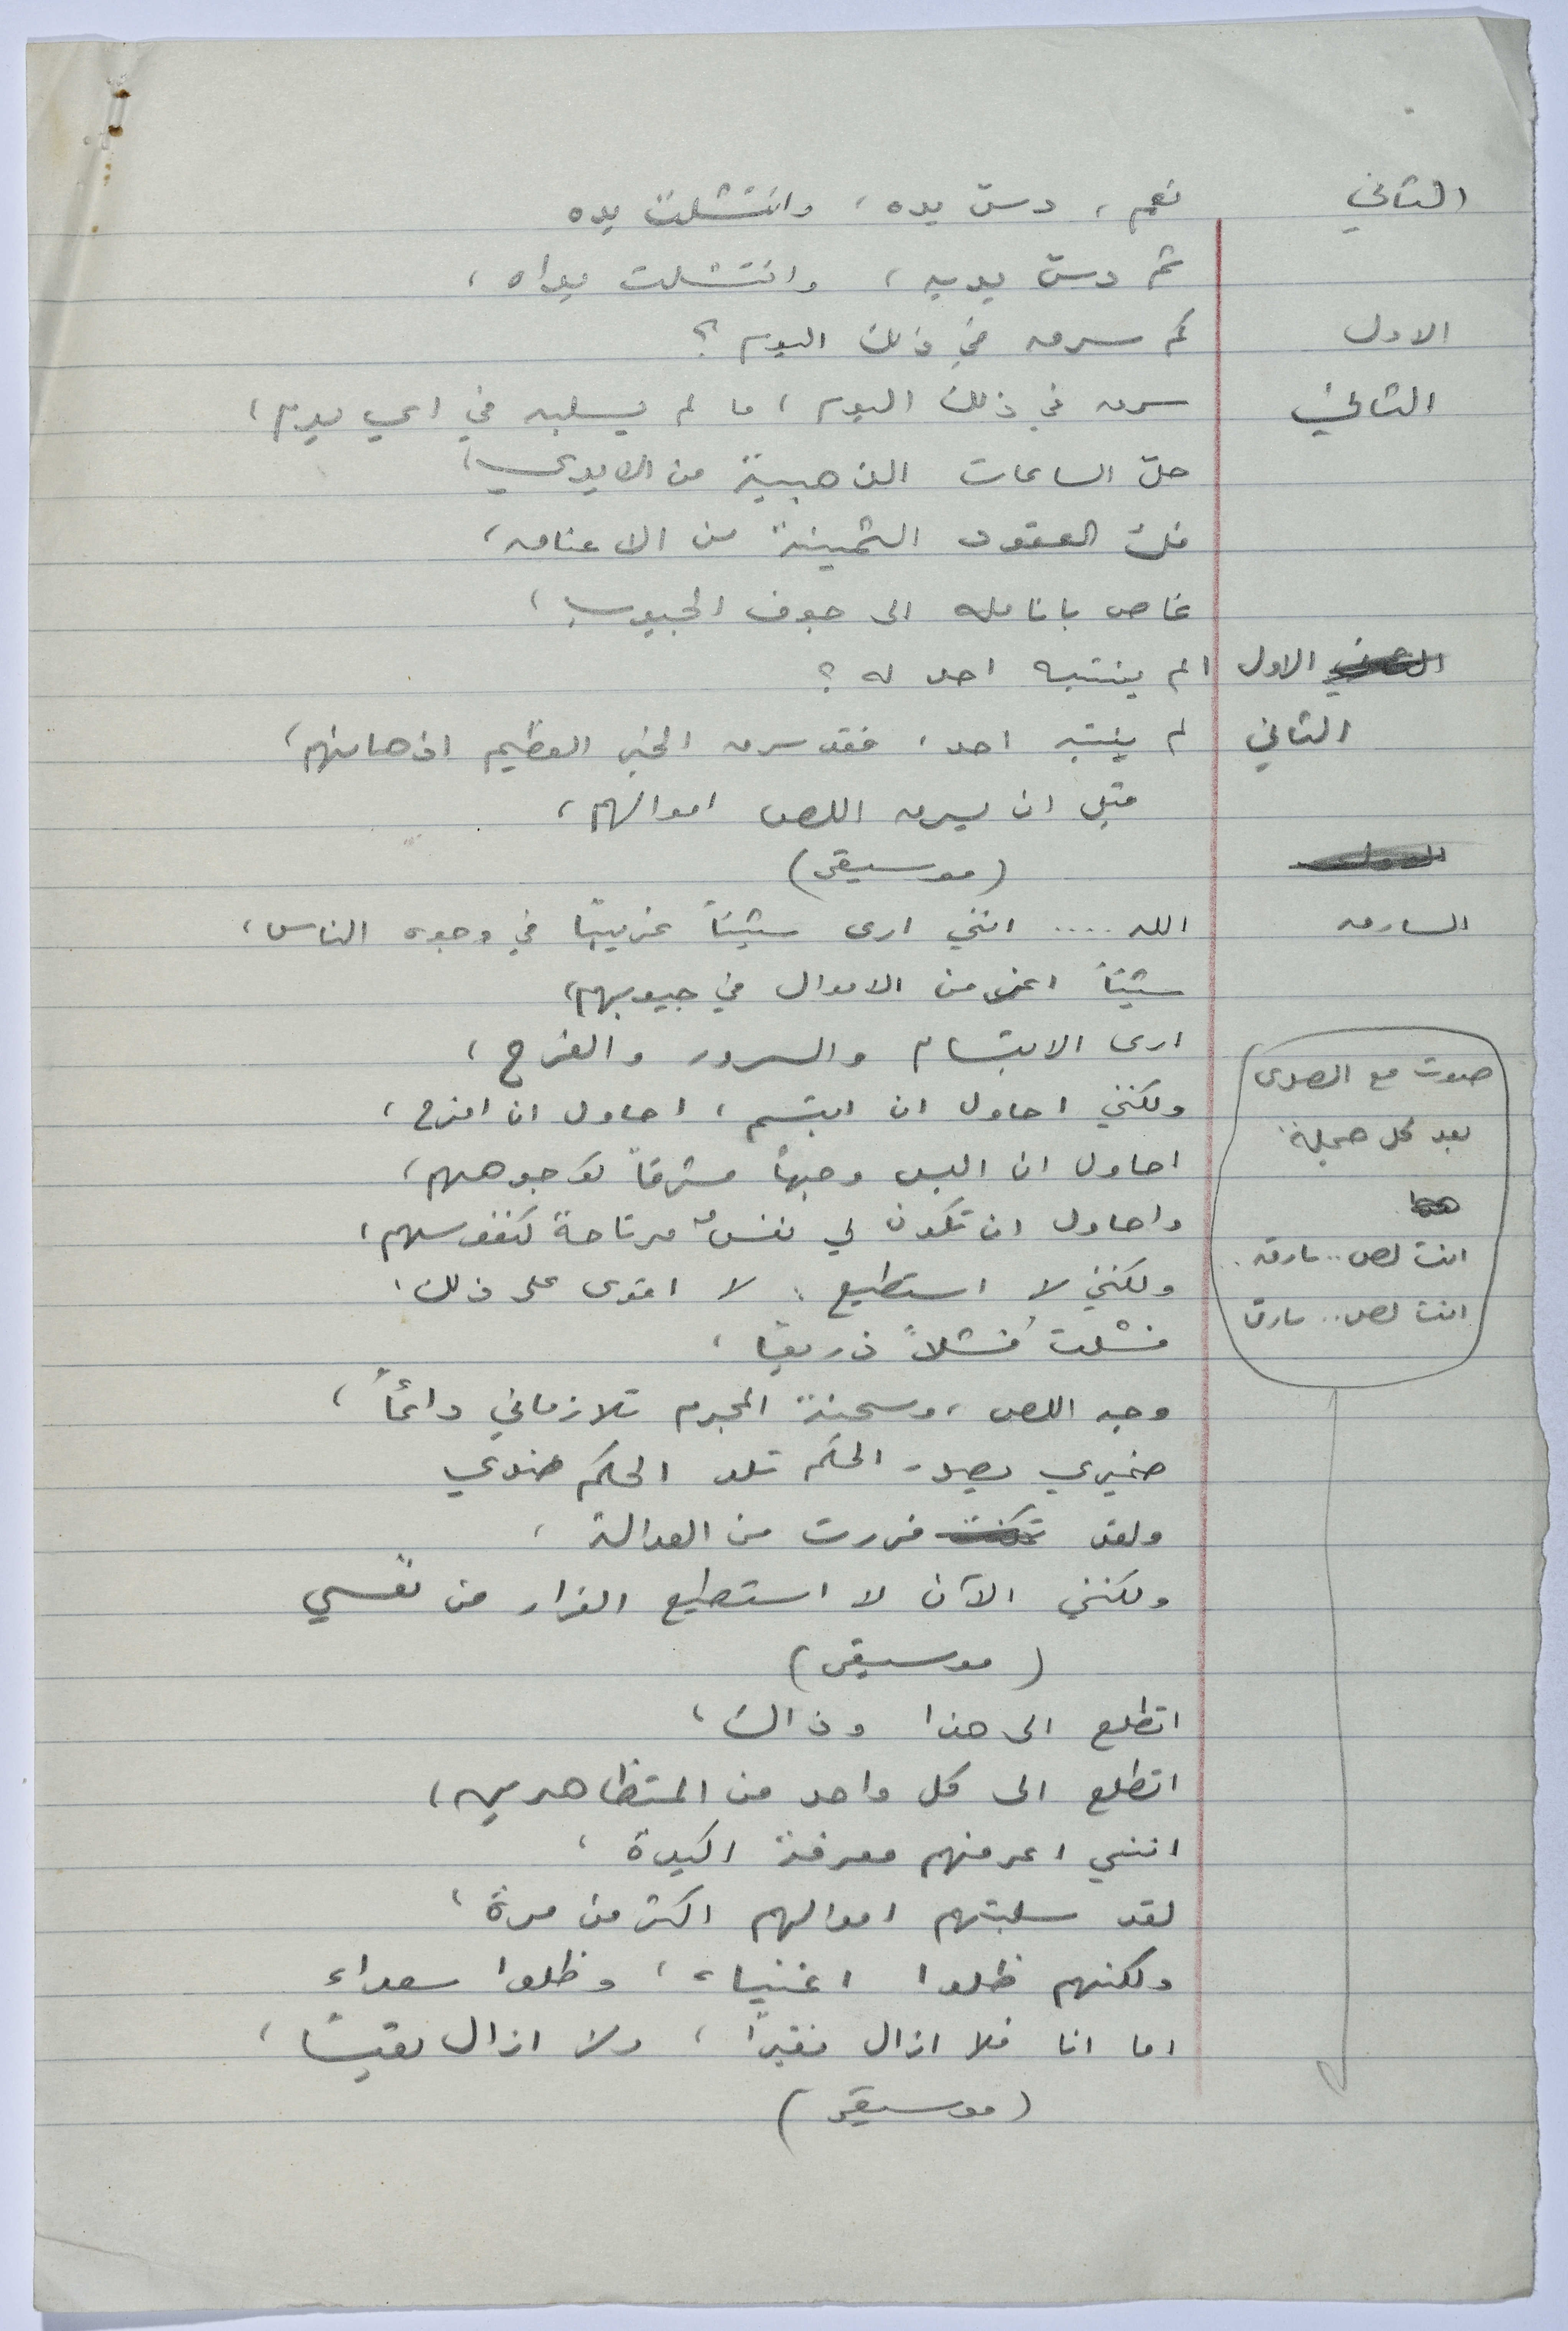 الثاني نعم، دسّ يده، وانتشلت يده
ثم دسّ يديه، وانتشلت يداه،
الاول كم سرق في ذلك اليوم؟
الثاني سرق في ذلك اليوم، ما لم يسلبه في اي يوم،
حلّ الساعات الذهبية من الايدي،
فك العقود الثمينة من الاعناق،
غاص بانامله الى جوف الجيوب،
الاول الم ينتبه احد له؟
الثاني لم ينتبه احد، فقد سرق الخبر العظيم اذهانهم،
قبل ان يسرق اللص اموالهم،
(موسيقى)
السارق الله .... انني ارى شيئاً غريباً في وجوه الناس،
شيئاً اعز من الاموال في جيوبهم،
ارى الابتسام والسرور والفرح،
ولكنني احاول ان ابتسم، احاول ان افرح،
احاول ان البس وجهاً مشرقاً كوجوههم،
واحاول ان تكون لي نفسٌ مرتاحة كنفوسهم،
ولكنني لا استطيع، لا اقوى على ذلك،
فشلتُ فشلاً ذريعاً،
وجه اللص، وسحنة المجرم تلازماني دائماً،
ضميري يصدر الحكم تلو الحكم ضدي
ولقد فررت من العدالة،
ولكنني الآن لا استطيع الفرار من نفسي
(موسيقى)
اتطلع الى هذا وذاك،
اتطلع الى كل واحد من المتظاهرين،
انني اعرفهم معرفة اكيدة،
لقد سلبتهم اموالهم اكثر من مرة،
ولكنهم ظلوا اغنياء، وظلوا سعداء
اما انا فلا ازال فقيراً، ولا ازال تعيساً،
(موسيقى)
صوت مع الصدى
بعد كل جملة
انت لص.. سارق..
انت لص.. سارق